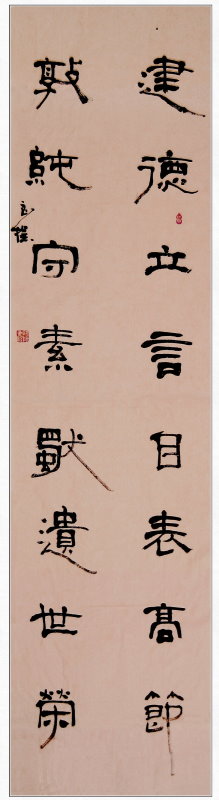 建德立言自表高節
敦純守素獨遺世榮